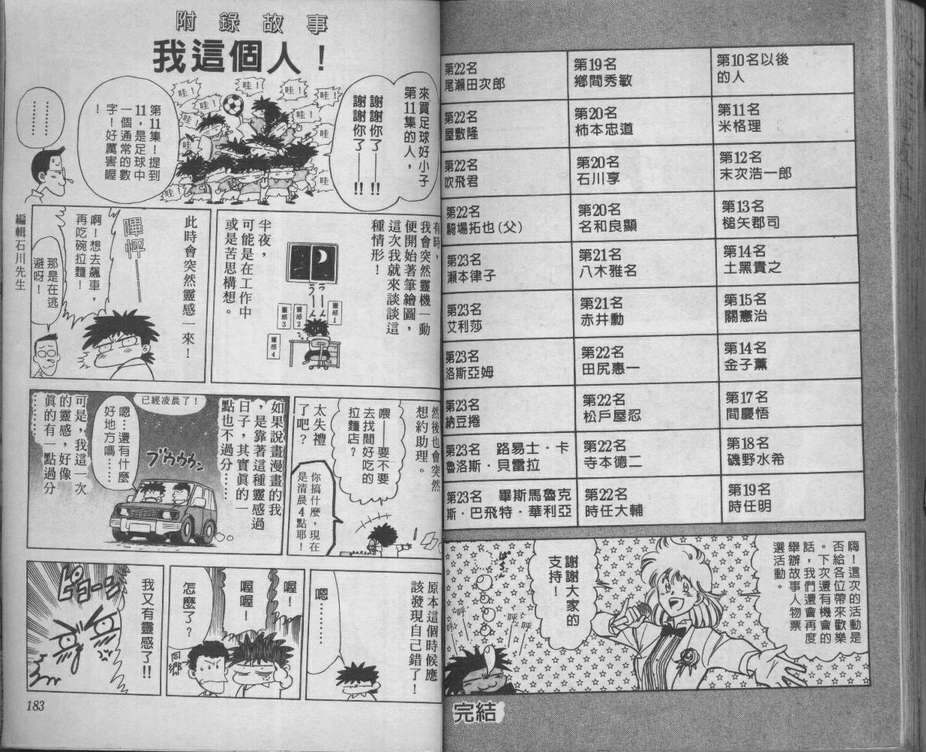 第10名以後
的人
第19名
鄉間秀敏
第22名
尾瀬田次郎
第11名
米格理
第20名
柿本忠道
第22名
屋敷隆
第12名
末次浩一郎
第20名
石川享
第22名
吹飛君
第13名
槌矢郡司
第20名
名和良顯
第22名
騎場拓也(父)
第14名
土黑貴之
第21名
八木雅名
第23名
瀨本律子
第15名
關憲治
第21名
赤井勳
第23名
艾利莎
第14名
金子薰
第22名
田尻惠一
第23名
洛斯亞姆
第17名
間慶悟
第22名
松戶屋忍
第23名
納豆捲
第18名
磯野水希
第22名
寺本德二
第23名 路易士・卡
魯洛斯・貝雷拉
第19名
時任明
第22名
時任大輔
第23名 畢斯馬魯克
斯・巴飛特・華利亞
嗨!這次的活動是
否給各位帶來歡樂
。下次還有機會的
話,我們還會再度
舉辦故事人物票
選活動。
謝謝大家的
支持!
呼…
呼…
完結
附錄故事
我這個人!
來買足球好小子
第11集的人,
謝謝你了——!!
謝謝你了——!!
哇!
哇!
哇!
哇!
哇!
哇!
哇!
哇!
第11集!提到
11,是足球中
一個通常的數
字!好厲害喔
!
…………
…………
編輯石川先生
有時,
我會突然靈機一動
便開始著筆繪圖,
這次我就來談談這
種情形!
靈感1
靈感2
靈感3
靈感4
半夜,
可能是在工作中
或是苦思構想。
此時會突然靈感一來!
嗶啷
啊!想去飆車,
再吃碗拉麵!
那是在逃
避呀!
然後也會突然
想約助理。
喂——要不要
去找間好吃的
拉麵店?
你搞什麼,現在
是清晨4點耶!
太失禮
了吧?
如果說畫漫畫的我
,是靠著這種靈感過
日子,其實真的一
點也不過分……
已經凌晨了!
ブウウウン
嗯…還有什麼
好地方嗎……
可是,我這一次
的靈感,好像
真的有一點過分
……
原本這個時候應
該發現自己錯了!
嗯……
喔!
喔喔!
怎麼了?
我又有靈感了!!
ピキーン
183